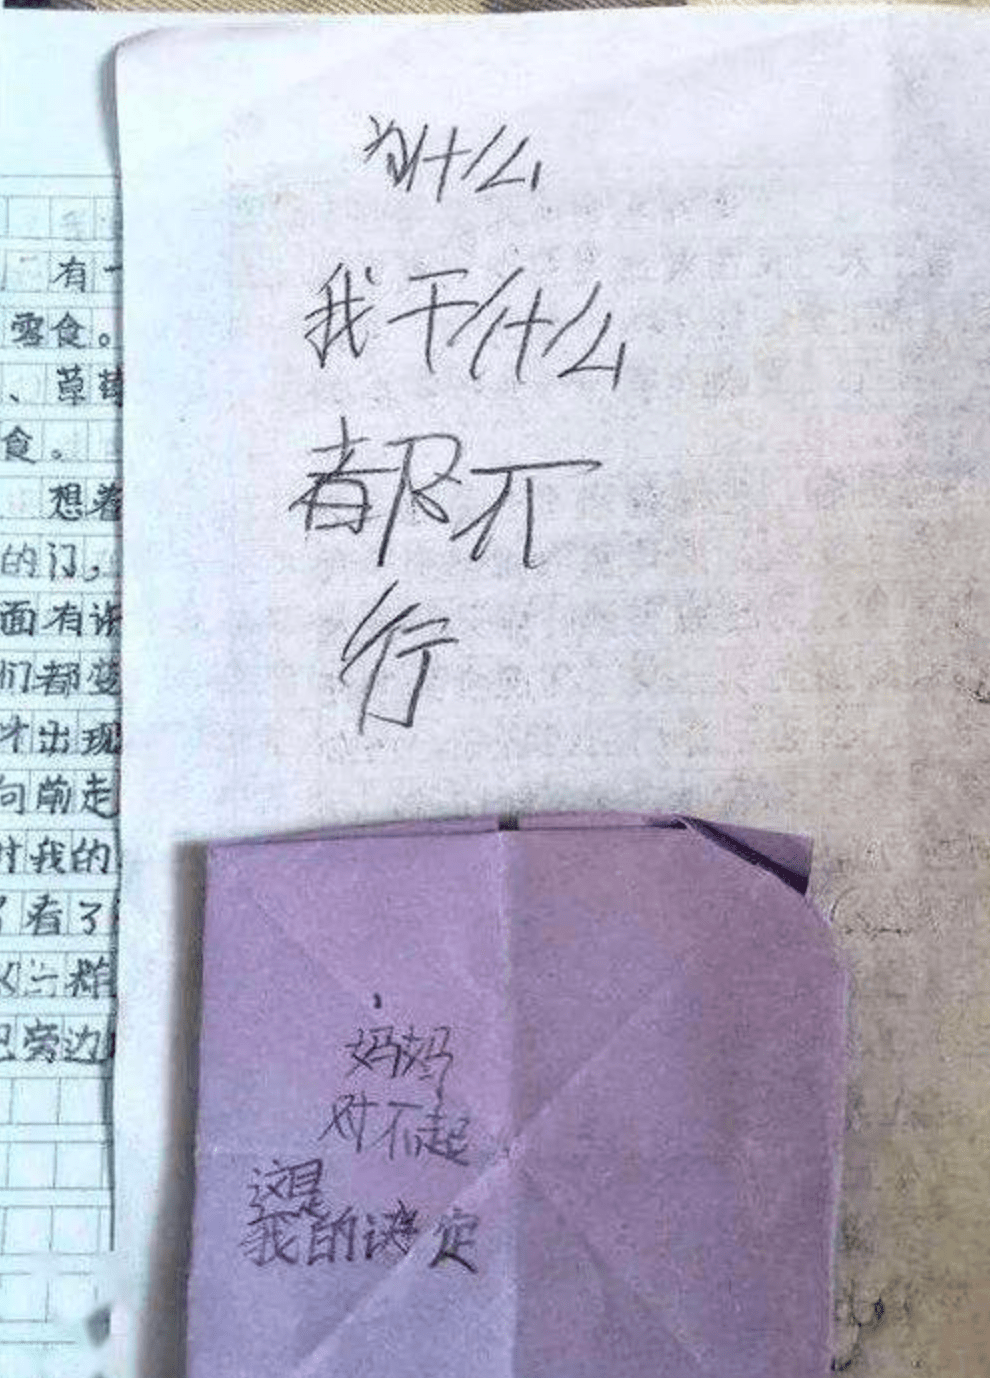 为什么
我干什么
都不
行
妈妈
对不起
这是
我的决定
有一
零食。
、草莓
食。
想着
的门,
面有许
们都变
才出现
向前走
时我的
了看了
旁边